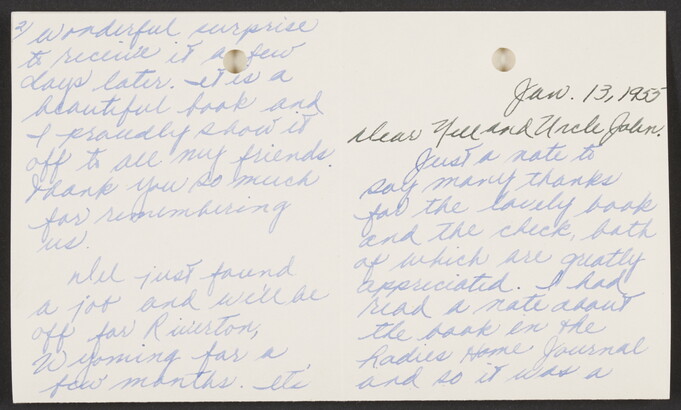 Jan. 13, 1955
Dear Nell and Uncle John.
Just a note to
say many thanks
for the lovely book
and the check, both
of which are greatly
appriciated. I had
read a note about
the book in the
Ladies Home Journal
and so it was a
2)
wonderful surprise
to receive it a few
days later. It is a
beautiful book and
I proudly show it
off to all my friends.
Thank you so much
for remembering
us.
just found
a job and we'll be
off for Riverton,
Wyoming for a
few months. It's